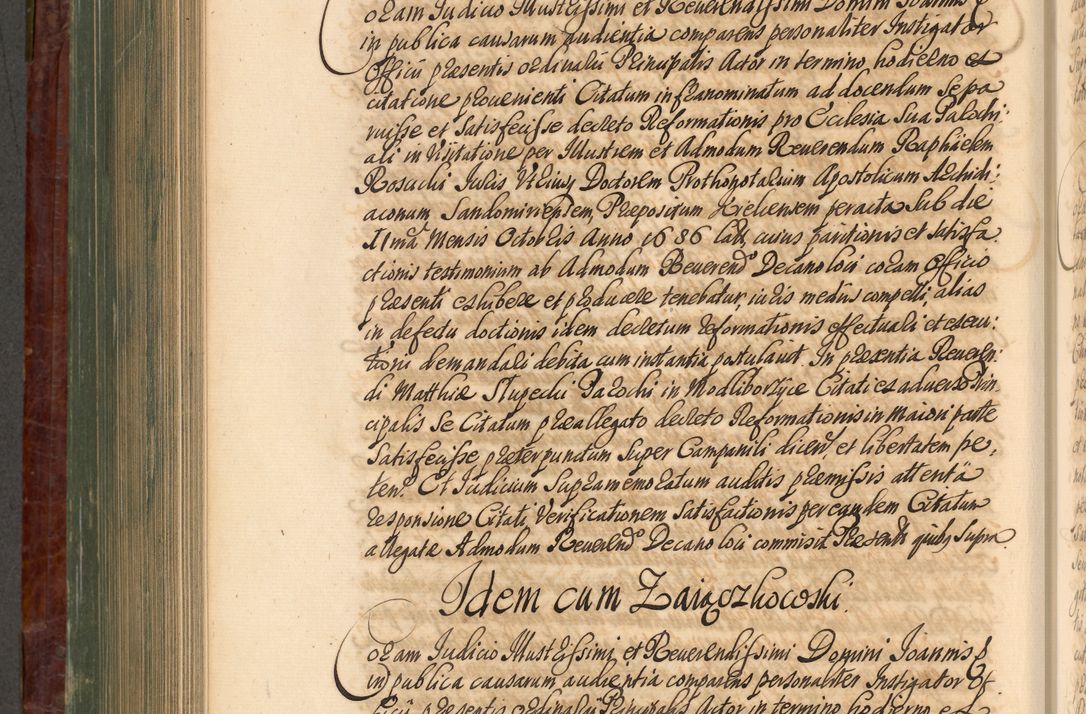 oram Judicio Illustrissimi et Reverendissimi Domini Joannis
in publica causarum audientia comparens personaliter Instigator
Officii præsentis ordinarii Principalis Actor in termino hodierno ex
citatione provenienti Citatum infranominatum ad docendum se pa
ruisse et Satisfecisse decreto Reformationis pro Ecclesia Sua Parochi:
ali in Visitatione per Illustrem et Admodum Reverendum Raphaelem
Juris Utriusq Doctorem Prothonotarium Apostolicum Archidi:
aconum Sandomiriensem, Præpositum Kielcensem peracta Sub die
11ma Mensis Octobris Anno 1686 lato, cuius paritionis et satisfa
ctionis testimonium ab Admodum Reverendo Decano loci coram Officio
præsenti exhibere et producere tenebatur, iuris mediis compelli, alias
in defectu doctionis idem decretum reformationis effectuari et execu:
tioni demandari debita cum instantia postulavit. In præsentia Reveren:
di Matthiæ Parochi in Modliborzyce Citati ex adverso Prin
cipalis Se Citatum præallegato decreto Reformationis in maiori parte
Satisfecisse præter pundum Super Campanili dicen, et libertatem pe,
ten. Et Judicium Supramemoratum auditis præmissis attentâ
responsione Citati, Verificationem Satisfactionis per eundem Citatum
allegatæ Admodum Reverendo Decano loci commisit Præsentib quibq Supra
Idem cum Zaiączkowski.
oram Judicio Illustrissimi et Reverendissimi Domini Joannis
in publica causarum audientia comparens personaliter Instigator Of
ficii præsentis ordinarii Principalis Actor in termino hodierno ex